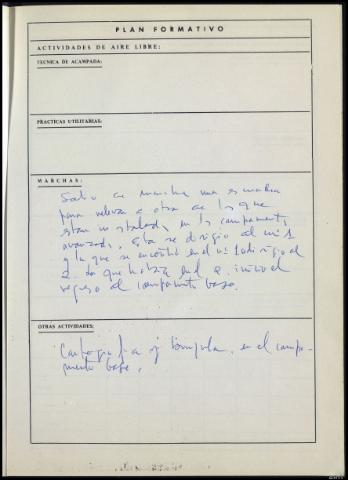 PLAN FORMATIVO
ACTIVIDADES DE AIRE LIBRE:
TECNICA DE ACAMPADA:
PRACTICAS UTILITARIAS:
MARCHAS:
Salió de marcha una escuadra
para relevar a otra de las que
están instaladas en los campamentos
avanzados, Esta se dirigió al nº 1
y la que se encontró en el nº 1 dirigió al
2. La que había en el 2. inició el
regreso al campamento base.
OTRAS ACTIVIDADES:
Cartografía y brújula, en el campa-
mento base.